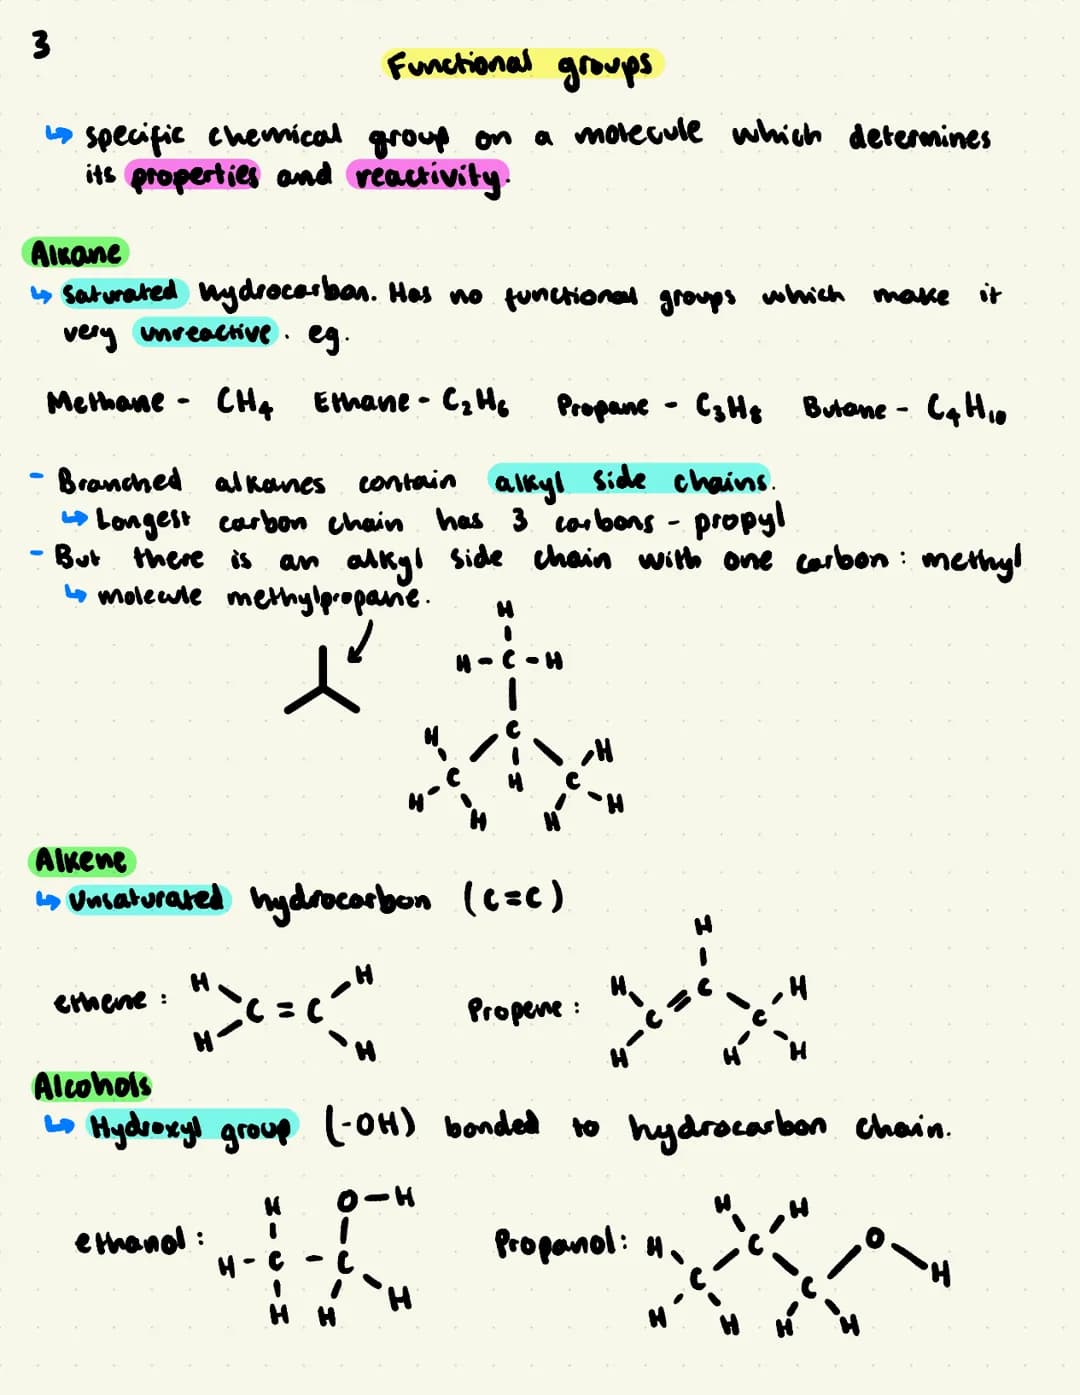 3
Functional groups
↳ specific chemical group on a molecule which determines
its properties and reactivity.
Alkane
↳ Saturated hydrocarbon. Has no functional groups which make it
very unreactive. eg.
Methane - CH₄ Ethane - C₂H₆ Propane - C₃H₈ Butane - C₄H₁₀
- Branched alkanes contain alkyl side chains.
↳ Longest carbon chain has 3 carbons - propyl
- But there is an alkyl side chain with one carbon: methyl
↳ molecule methylpropane.
H
H - C - H
H C H
C H C
H H H H
Alkene
↳ Unsaturated hydrocarbon (C=C)
H
ethene: H H Propene: H C H
C = C C C
H H H H H
Alcohols
↳ Hydroxyl group (-OH) bonded to hydrocarbon chain.
H O-H H H
ethanol: H - C - C Propanol: H C O H
C C
H H H H H H H